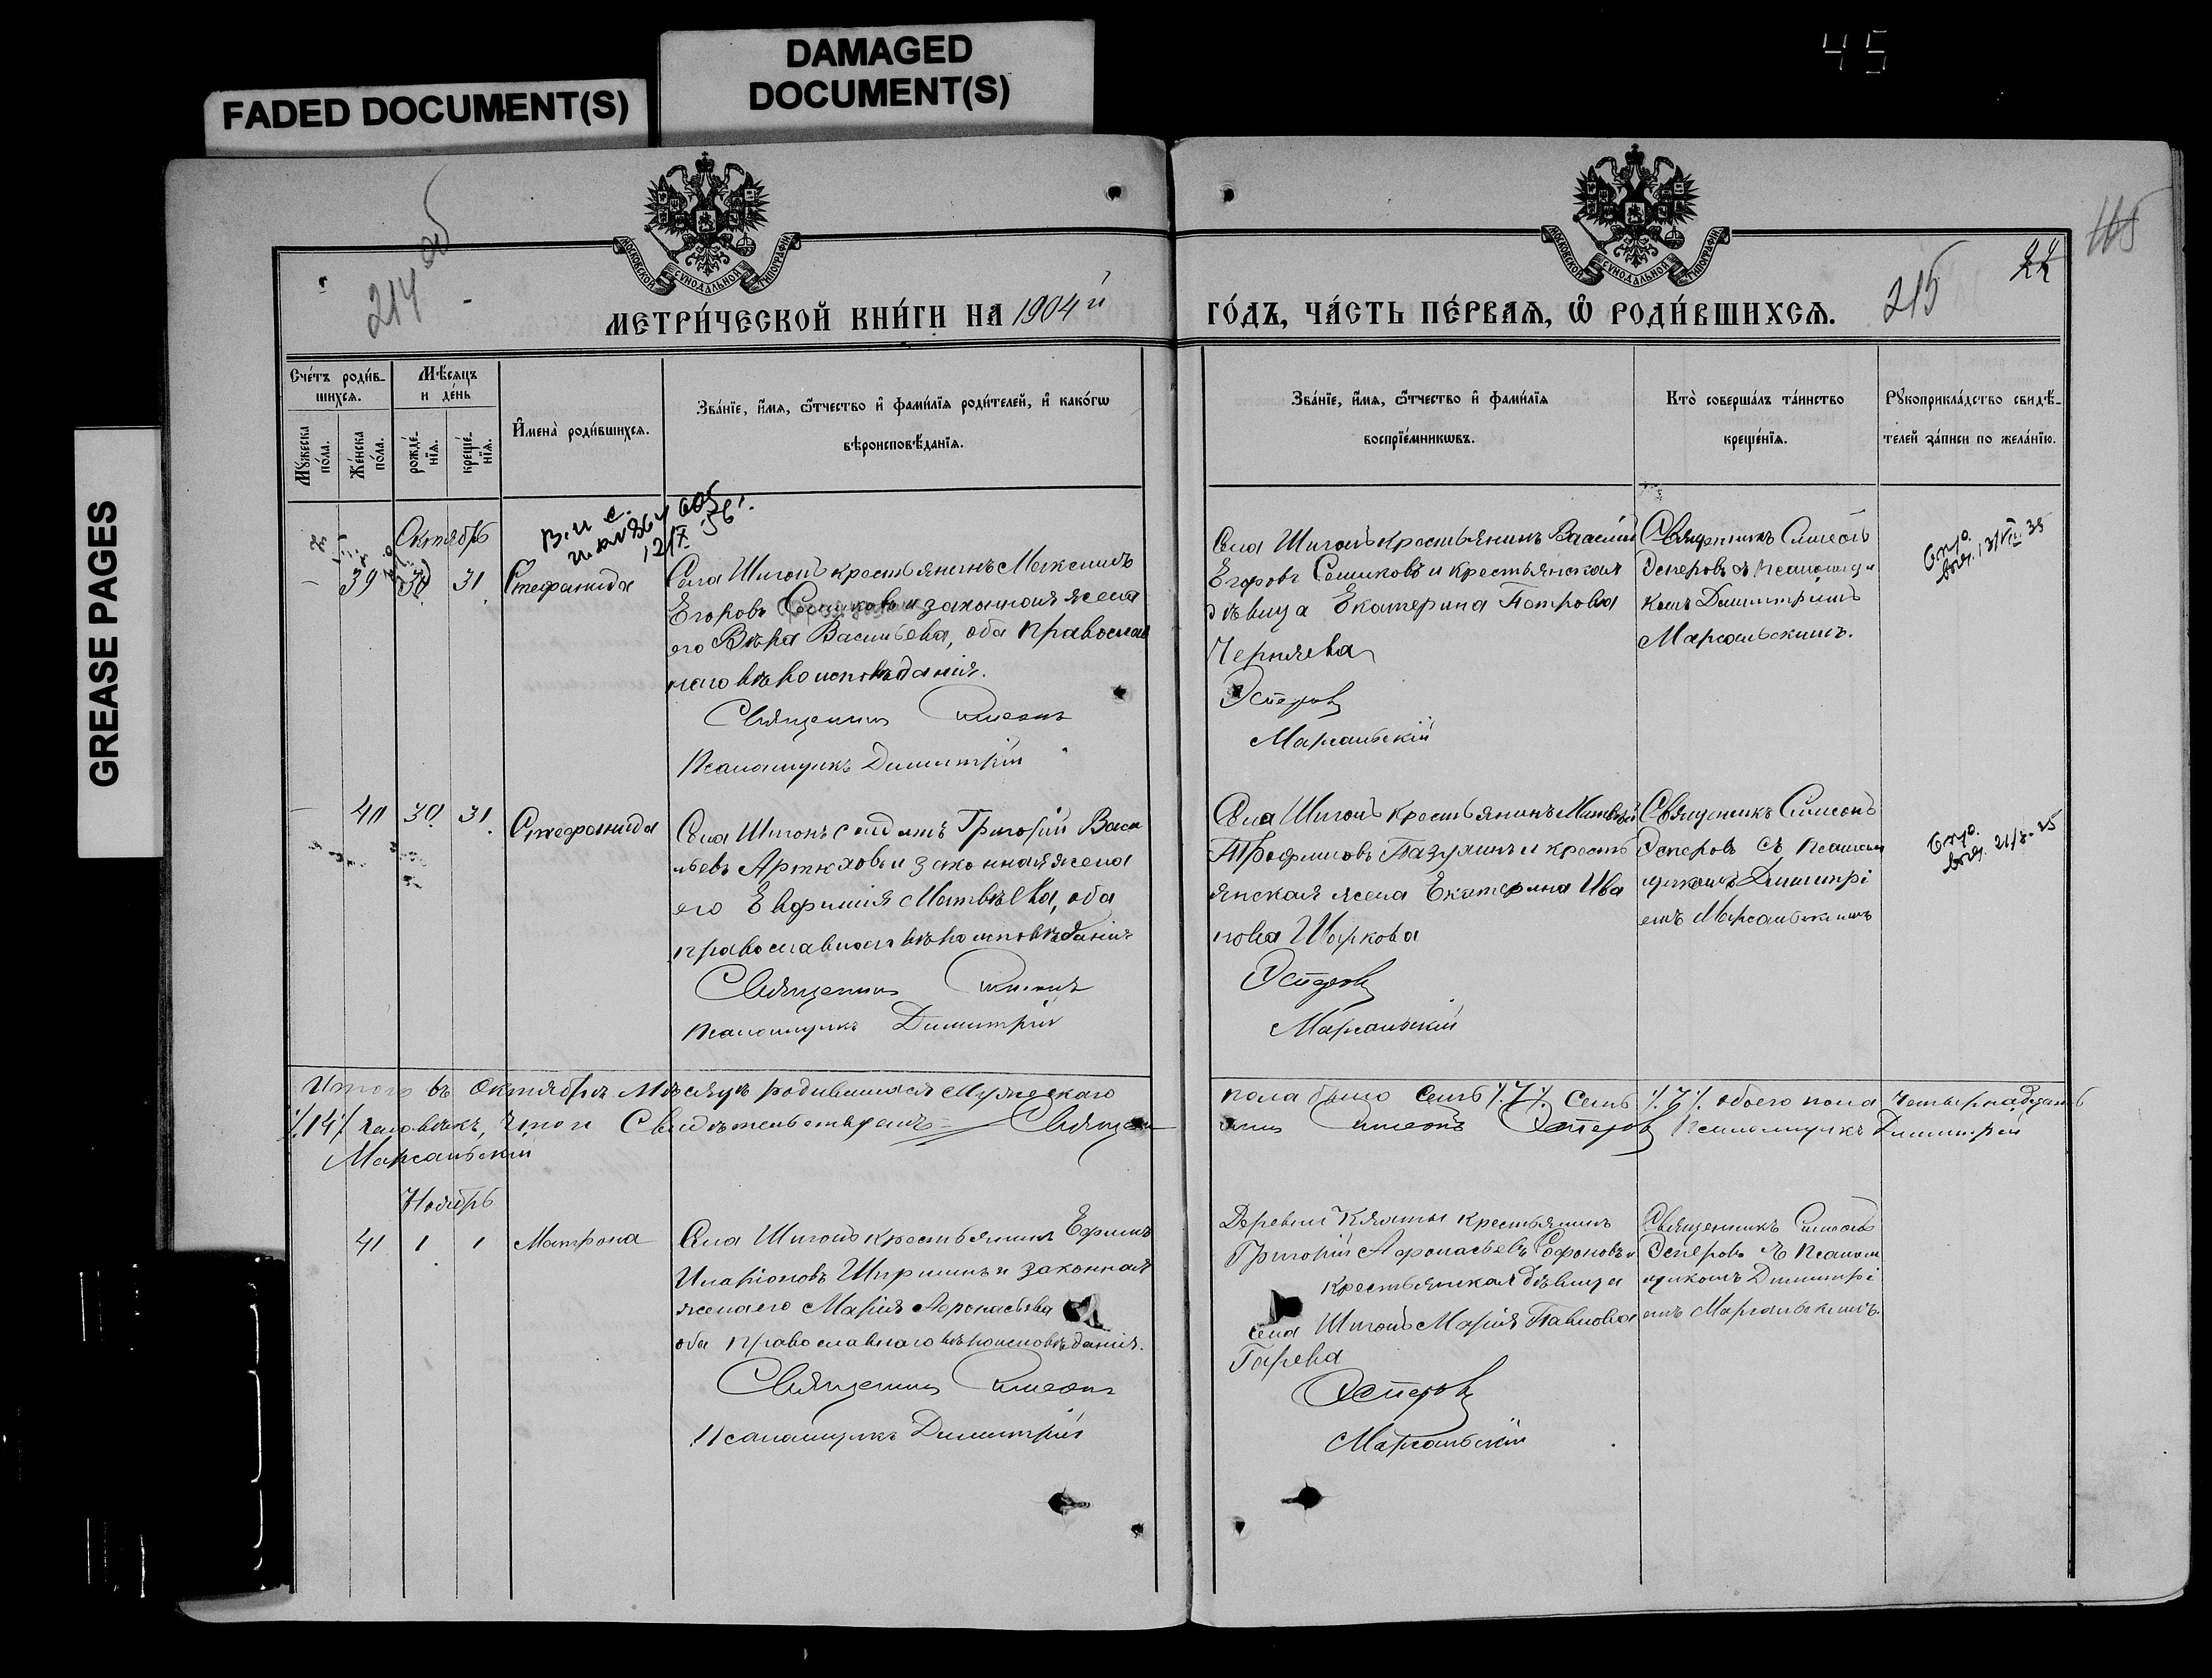 45
DAMAGED
DOCUMENT(S)
FADED DOCUMENT(S)
GREASE PAGES
МОСКОВСКОЙ СѴНОДАЛЬНОЙ ТИПОГРАФІИ
МОСКОВСКОЙ СѴНОДАЛЬНОЙ ТИПОГРАФІИ
214 об
215
22
МЕТРИ́ЧЕСКОЙ КНИ́ГИ НА 1904 й
ГО́ДЪ, ЧА́СТЬ ПЕ́РВАѦ, Ѡ҆ РОДИ́ВШИХСѦ.
Сче́тъ роди́в-
шихсѧ.
Мѣ́сѧцъ
и де́нь
Мꙋ́жеска
по́ла.
Же́нска
по́ла.
рожде́-
нїѧ.
креще́-
нїѧ.
И҆мена̀ роди́вшихсѧ.
Зва́нїе, и҆́мѧ, ѻ҆́тчество и҆ фами́лїѧ роди́телей, и҆ како́гѡ
вѣроисповѣ́данїѧ.
Зва́нїе, и҆́мѧ, ѻ҆́тчество и҆ фами́лїѧ
воспрїе́мникѡвъ.
Кто̀ соверша́лъ та́инство
креще́нїѧ.
Рꙋкоприкла́дство свидѣ́-
телей за́писи по жела́нїю.
Октябрь
39 30 31 Стефанида
Села Шигонъ крестьянинъ
Егоровъ и законная жена
его Вѣра Васильева, оба православ
наго вѣроисповѣданія.
Священникъ Симеонъ
Псаломщикъ Димитрій
Села Шигонъ крестьянинъ Василій
Егоровъ Сешковъ и крестьянская
дѣвица Екатерина Петрова
Черняева
Эсперовъ
Марсальскій
Священникъ Симеонъ
Эсперовъ съ псаломщи
комъ Димитріемъ
Марсальскимъ.
40 30 31 Стефанида
Села Шигонъ солдатъ Григорій Васи
льевъ Артюховъ и законная жена
его Евфимія Матвѣева, оба
православнаго вѣроисповѣданія
Священникъ Симеонъ
Псаломщикъ Димитрій
Села Шигонъ крестьянинъ Матвѣй
Трофимовъ и кресть
янская жена Екатерина Ива
нова Шаркова
Эсперовъ
Марсальскій
Священникъ Симеонъ
Эсперовъ съ псалом
щикомъ Димитрі
емъ Марсальскимъ
Итого въ Октябрѣ мѣсяцѣ родившихся мужескаго
пола было семь /7/. семь /7/. обоего пола четырнадцать
/14/ человѣкъ, въ томъ свидѣтельствуемъ = Священ
никъ Симеонъ Эсперовъ Псаломщикъ Димитрій
Марсальскій
Ноябрь
41 1 1 Матрона
Села Шигонъ крестьянинъ Ефимъ
Иларіоновъ Ширшинъ и законная
жена его Марія Афонасьева
оба православнаго вѣроисповѣданія.
Священникъ Симеонъ
Псаломщикъ Димитрій
Деревни Кяхты крестьянинъ
Григорій Афонасьевъ Софоновъ и
крестьянская дѣвица
села Шигонъ Марія Павлова
Гарева
Эсперовъ
Марсальскій
Священникъ Симеонъ
Эсперовъ съ псалом
щикомъ Димитрі
емъ Марсальскимъ.